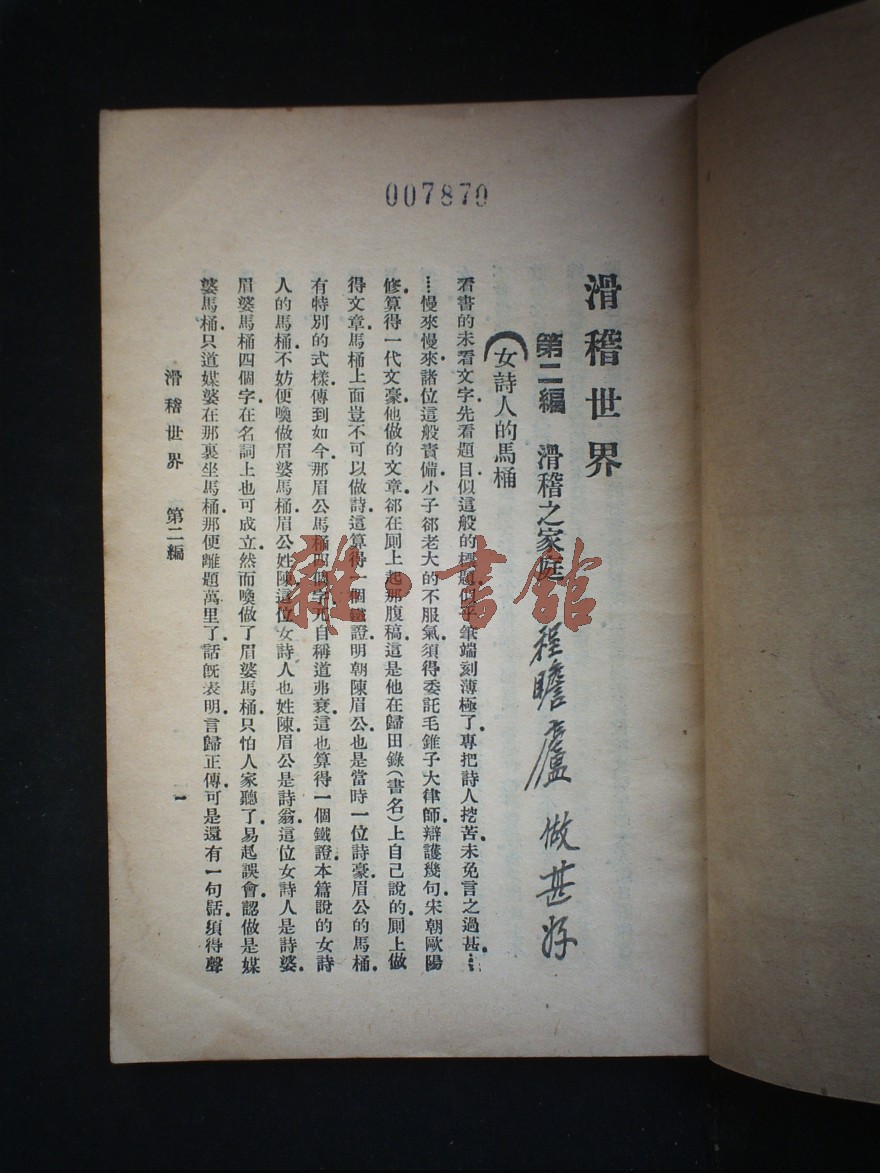 007870
滑稽世界
第二編 滑稽之家庭 程瞻廬 做甚好
女詩人的馬桶
看書的未看文字.先看題目.似這般的標題.似乎筆端刻薄極了.專把詩人挖苦.未免言之過甚.…
…慢來慢來.諸位這般責備.小子郤老大的不服氣.須得委託毛錐子大律師.辯護幾句.宋朝歐陽
修.算得一代文豪.他做的文章.郤在厠上起那腹稿.這是他在歸田錄(書名)上自己說的.厠上做
得文章.馬桶上面豈不可以做詩.這算得一個鐵證.明朝陳眉公.也是當時一位詩豪.眉公的馬桶.
有特別的式樣.傳到如今.那眉公馬桶四個字.兀自稱道弗衰.這也算得一個鐵證.本篇說的女詩
人的馬桶.不妨便喚做眉婆馬桶.眉公姓陳.這位女詩人也姓陳.眉公是詩翁.這位女詩人是詩婆.
眉婆馬桶四個字.在名詞上也可成立.然而喚做了眉婆馬桶.只怕人家聽了.易起誤會.認做是媒
婆馬桶.只道媒婆在那裏坐馬桶.那便離題萬里了.話旣表明.言歸正傳.可是還有一句話.須得聲
滑稽世界 第二編
一
雜·書館